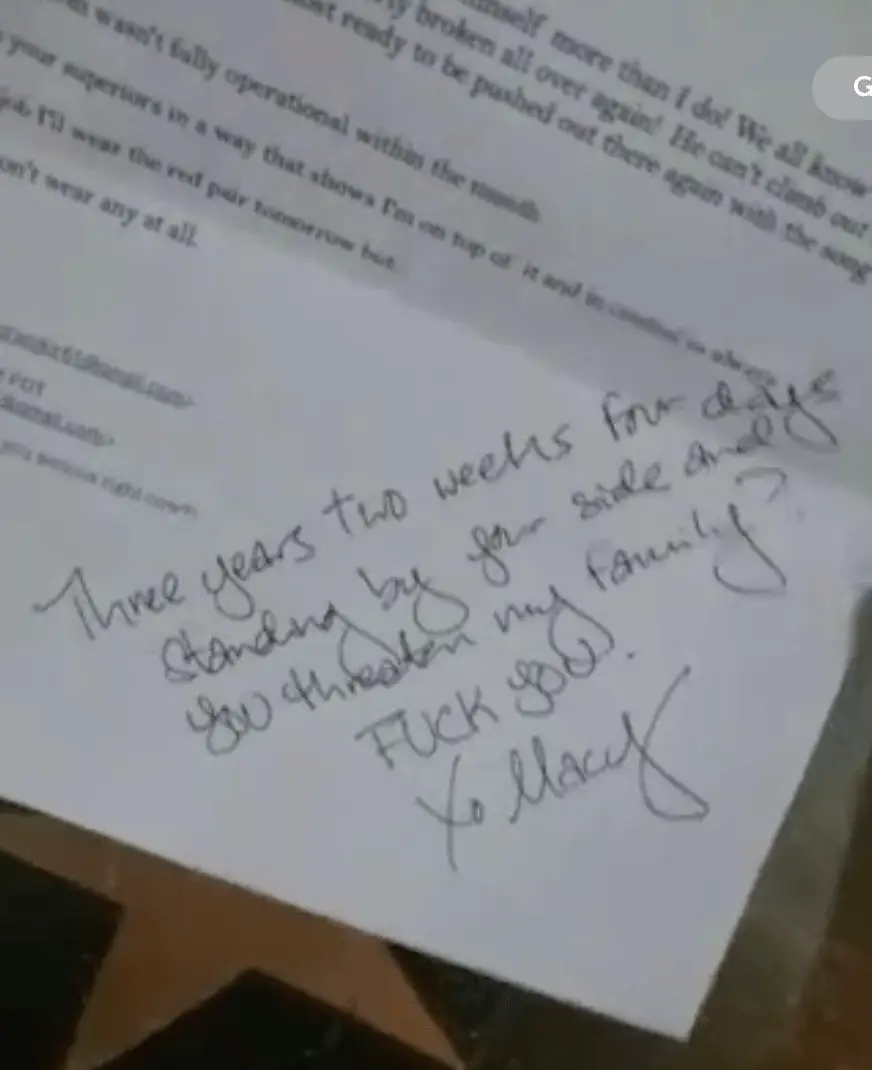 mself more than I do! We all know
ly broken all over again! He can't climb out
ost ready to be pushed out there again with the song
wasn't fully operational within the month
your superiors in a way that shows I'm on top of it and in control as always
job I'll wear the red pair tomorrow but
on't wear any at all.
G
right now
Three years two weeks four days
standing by your side and
you threaten my family?
FUCK YOU.
Xo Macy